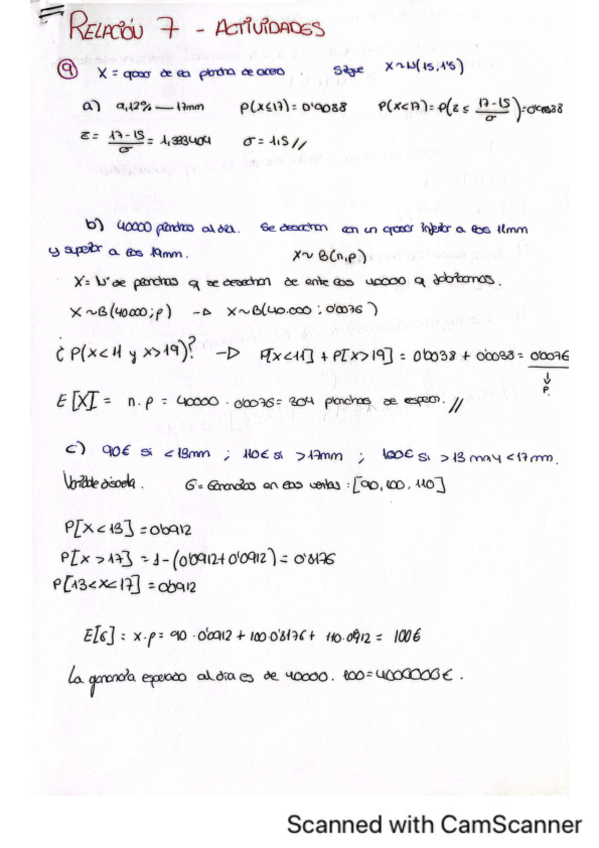 RELACIÓN 7 - ACTIVIDADES
9 X = grosor de la plancha de acero. Sigue X~N(15,1'5)
a) 9,12% — 17mm P(X≤17)=0'9088 P(X<17)=P(Z≤ (17-15)/σ)=0'9088
Z= (17-15)/σ = 1,333404 σ = 1,5//
b) 40000 planchas al día. Se desechan con un grosor inferior a los 11mm
y superior a los 19mm. X~B(n,p)
X= Nº de planchas q se desechan de entre las 40000 q fabricamos.
X~B(40000;p) → X~B(40.000; 0'0076)
¿P(X<11 y X>19)? → P[X<11] + P[X>19] = 0'0038 + 0'0038 = 0'0076
↓
P.
E[X]= n.p = 40000 . 0'0076= 304 planchas se esperan.//
c) 90€ si <13mm ; 110€ si >17mm ; 100€ si >13 mm y <17mm.
Variable discreta. G= Ganancias en las ventas: [90,100,110]
P[X<13]=0'0912
P[X>17]=1-(0'0912+0'0912)=0'8176
P[13<X<17]=0'0912
E[G]: x.p= 90 . 0'0912 + 100.0'8176+ 110.0912 = 100€
La ganancia esperada al día es de 40000. 100=4000000€.
Scanned with CamScanner